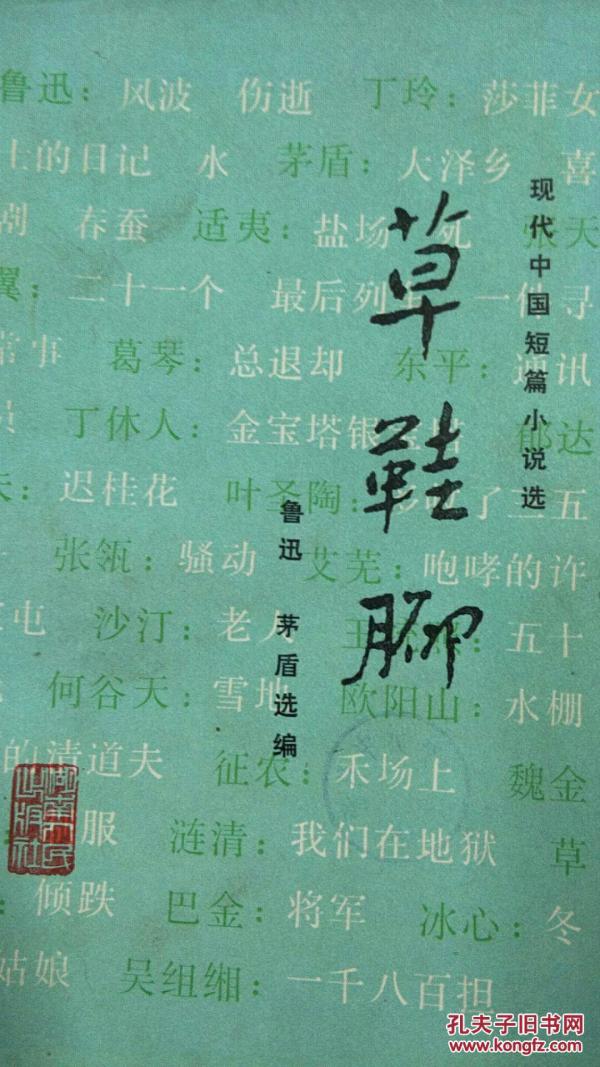 现代中国短篇小说选
草鞋脚
鲁迅 茅盾选编
鲁迅：风波 伤逝 丁玲：莎菲女
士的日记 水 茅盾：大泽乡 喜
剧 春蚕 适夷：盐场 死 张天
翼：二十一个 最后列车 一件寻
常事 葛琴：总退却 东平：通讯
员 丁休人：金宝塔银宝塔 郁达
夫：迟桂花 叶圣陶：多收了三五
张瓴：骚动 艾芜：咆哮的许
屯 沙汀：老人 五十
何谷天：雪地 欧阳山：水棚
的清道夫 征农：禾场上 魏金
服 涟清：我们在地狱 草
：倾跌 巴金：将军 冰心：冬
姑娘 吴组缃：一千八百担
河南人民出版社
孔夫子旧书网
www.kongfz.com